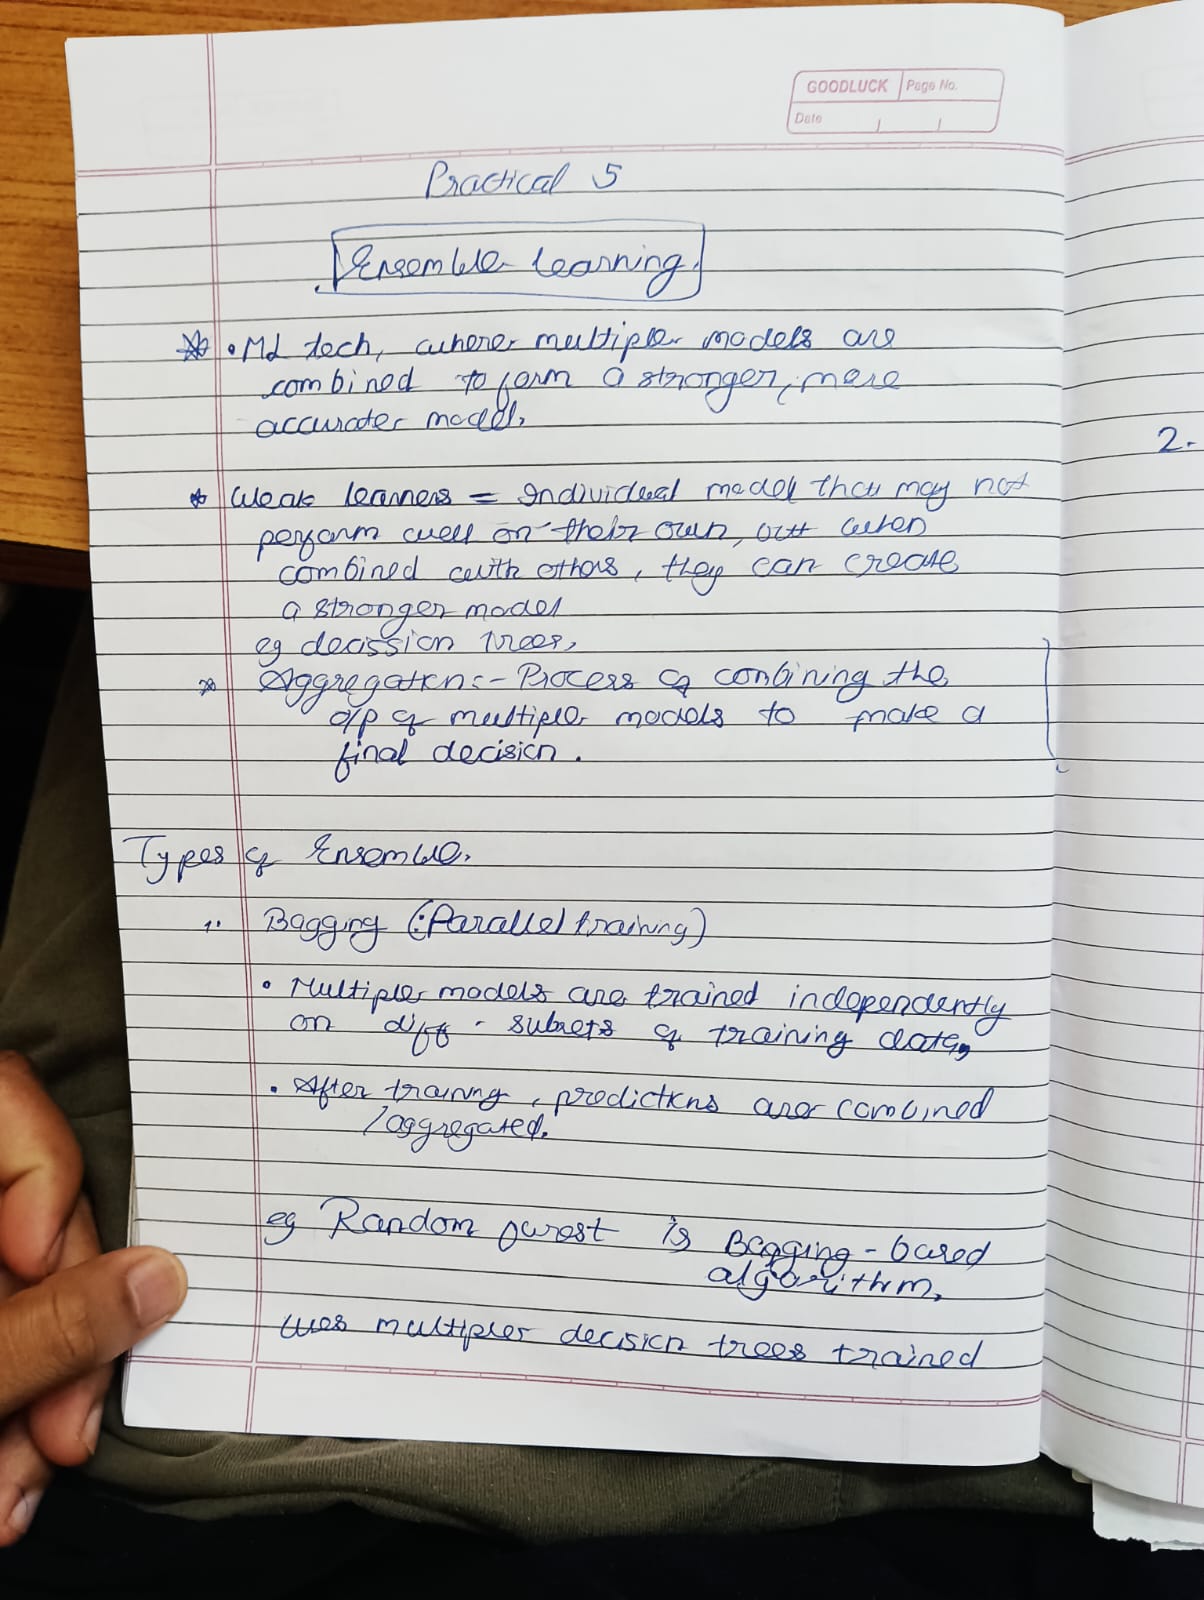 GOODLUCK Page No.
Date
Practical 5
Ensemble learning.
* • ML tech, where multiple models are
combined to form a stronger, more
accurate model.
* Weak learners = Individual model that may not
perform well on their own, but when
combined with others, they can create
a stronger model
eg decission trees.
* Aggregation:- Process of combining the
o/p of multiple models to make a
final decision.
Types of Ensemble.
1. Bagging (:Parallel training)
• Multiple models are trained independently
on diff. subsets of training data,
• After training, predictions are combined
/aggregated.
eg Random forest is Bagging-based
algorithm,
uses multiple decision trees trained
2.